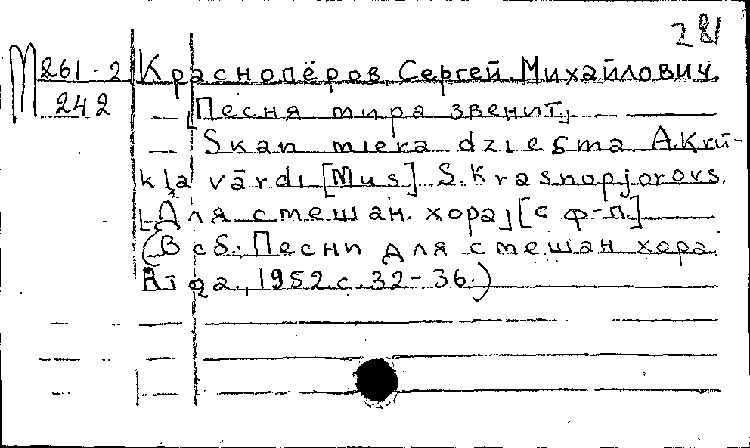 281
М 261-2 Краснопёров, Сергей Михайлович.
242 [Песня мира звенит]
Skan miera dziesma A.Krū-
kļa vārdi [Mus] S.Krasnopjorovs.
[Для смешан. хора] [с ф-п.]
(В сб. Песни для смешан хора.
Rīga, 1952 с. 32-36.)